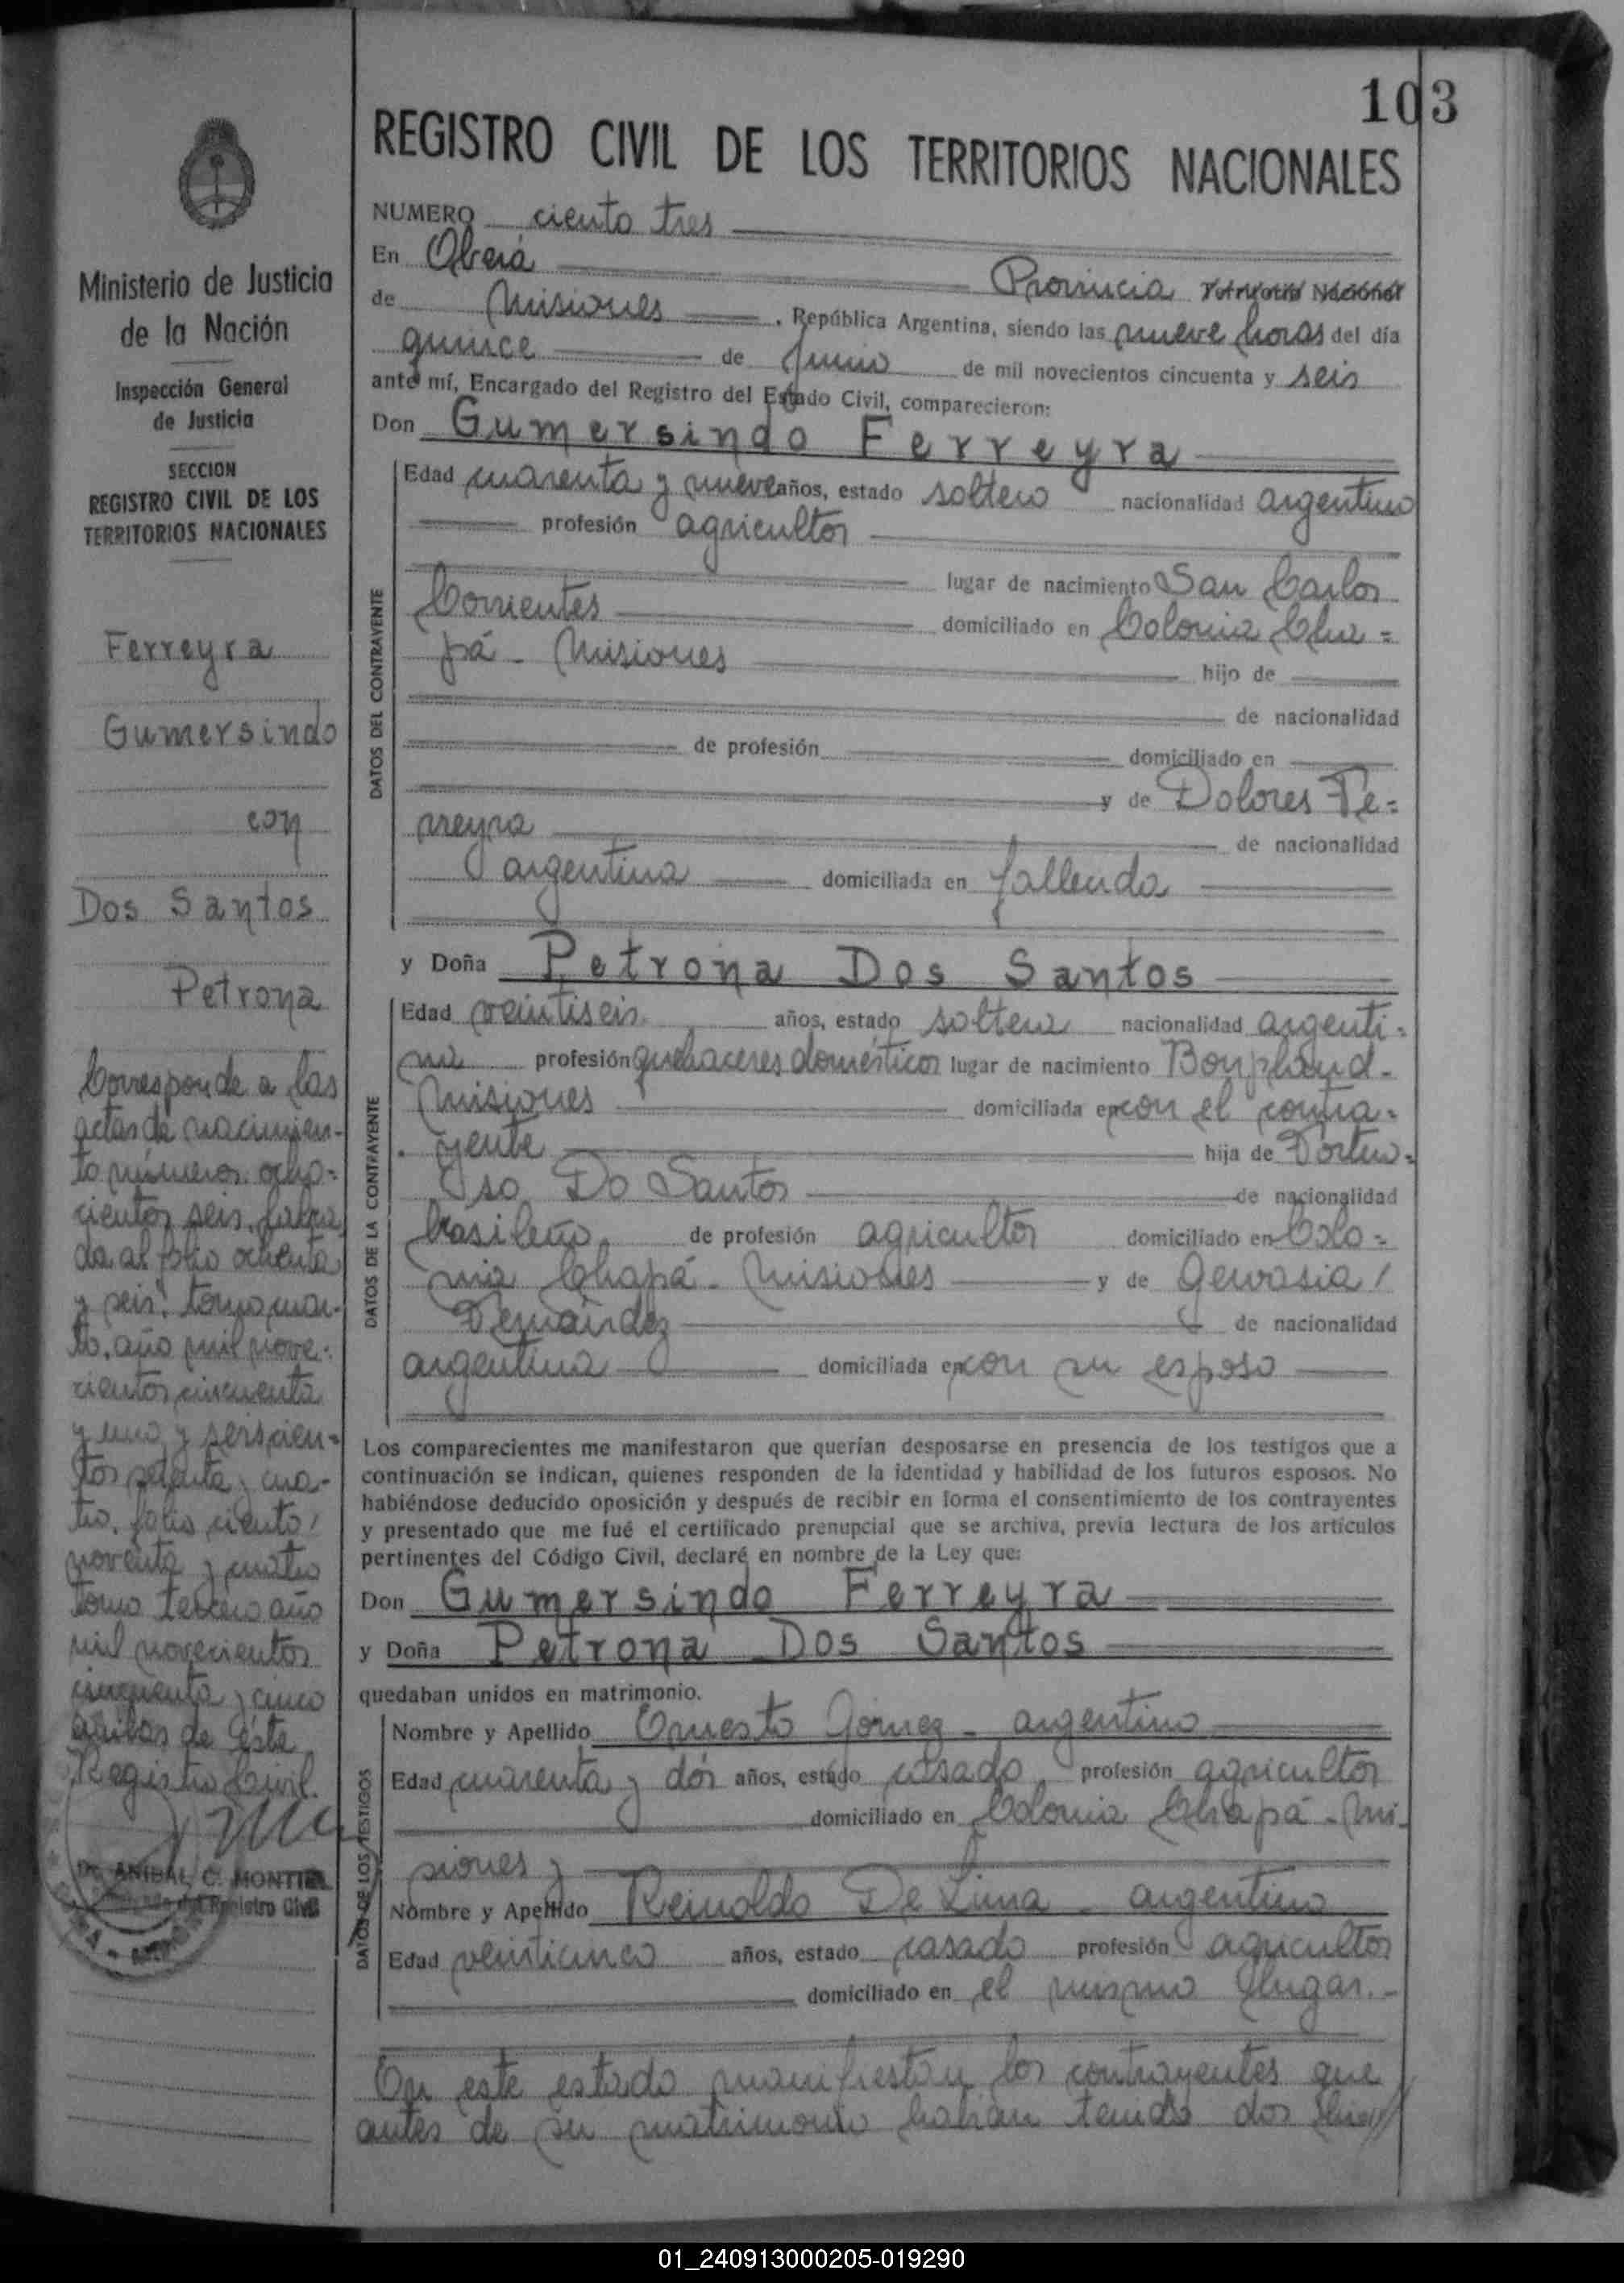 103
REGISTRO CIVIL DE LOS TERRITORIOS NACIONALES
NUMERO ciento tres
En Oberá Provincia Territorio Nacional
de Misiones , República Argentina, siendo las nueve horas del día
quince de Junio de mil novecientos cincuenta y seis
ante mí, Encargado del Registro del Estado Civil, comparecieron:
Don Gumersindo Ferreyra
DATOS DEL CONTRAYENTE
Edad cuarenta y nueve años, estado soltero nacionalidad argentino
profesión agricultor
lugar de nacimiento San Carlos
Corrientes domiciliado en Colonia Cha=
pá - Misiones hijo de
de nacionalidad
de profesión domiciliado en
y de Dolores Fe=
rreyra de nacionalidad
argentina domiciliada en fallecida
y Doña Petrona Dos Santos
DATOS DE LA CONTRAYENTE
Edad veintiseis años, estado soltera nacionalidad argenti=
na profesión quehaceres domésticos lugar de nacimiento Bonpland -
Misiones domiciliada en con el contra=
yente hija de Portu=
so Do Santos de nacionalidad
brasileño de profesión agricultor domiciliado en Colo=
nia Chapá - Misiones y de Gervasia /
Fernández de nacionalidad
argentina domiciliada en con su esposo
Los comparecientes me manifestaron que querían desposarse en presencia de los testigos que a
continuación se indican, quienes responden de la identidad y habilidad de los futuros esposos. No
habiéndose deducido oposición y después de recibir en forma el consentimiento de los contrayentes
y presentado que me fué el certificado prenupcial que se archiva, previa lectura de los artículos
pertinentes del Código Civil, declaré en nombre de la Ley que:
Don Gumersindo Ferreyra
y Doña Petrona Dos Santos
quedaban unidos en matrimonio.
DATOS DE LOS TESTIGOS
Nombre y Apellido Ernesto Gomez - argentino
Edad cuarenta y dós años, estado casado profesión agricultor
domiciliado en Colonia Chapá - Mi-
siones y
Nombre y Apellido Reinoldo De Lima - argentino
Edad veinticinco años, estado casado profesión agricultor
domiciliado en el mismo lugar.-
En este estado manifiestan los contrayentes que
antes de su matrimonio habían tenido dos hijos//
Ministerio de Justicia
de la Nación
Inspección General
de Justicia
SECCION
REGISTRO CIVIL DE LOS
TERRITORIOS NACIONALES
Ferreyra
Gumersindo
con
Dos Santos
Petrona
Corresponde a las
actas de nacimien-
to números ocho=
cientos seis, labra
da al folio ochenta
y seis, tomo cuar-
to, año mil nove=
cientos cincuenta
y uno y seiscien=
tos setenta y cua-
tro, folio ciento /
noventa y cuatro
tomo tercero año
mil novecientos
cincuenta y cinco
ambos de éste
Registro Civil.
Dr. ANIBAL C. MONTIEL
del Registro Civil
01_240913000205-019290